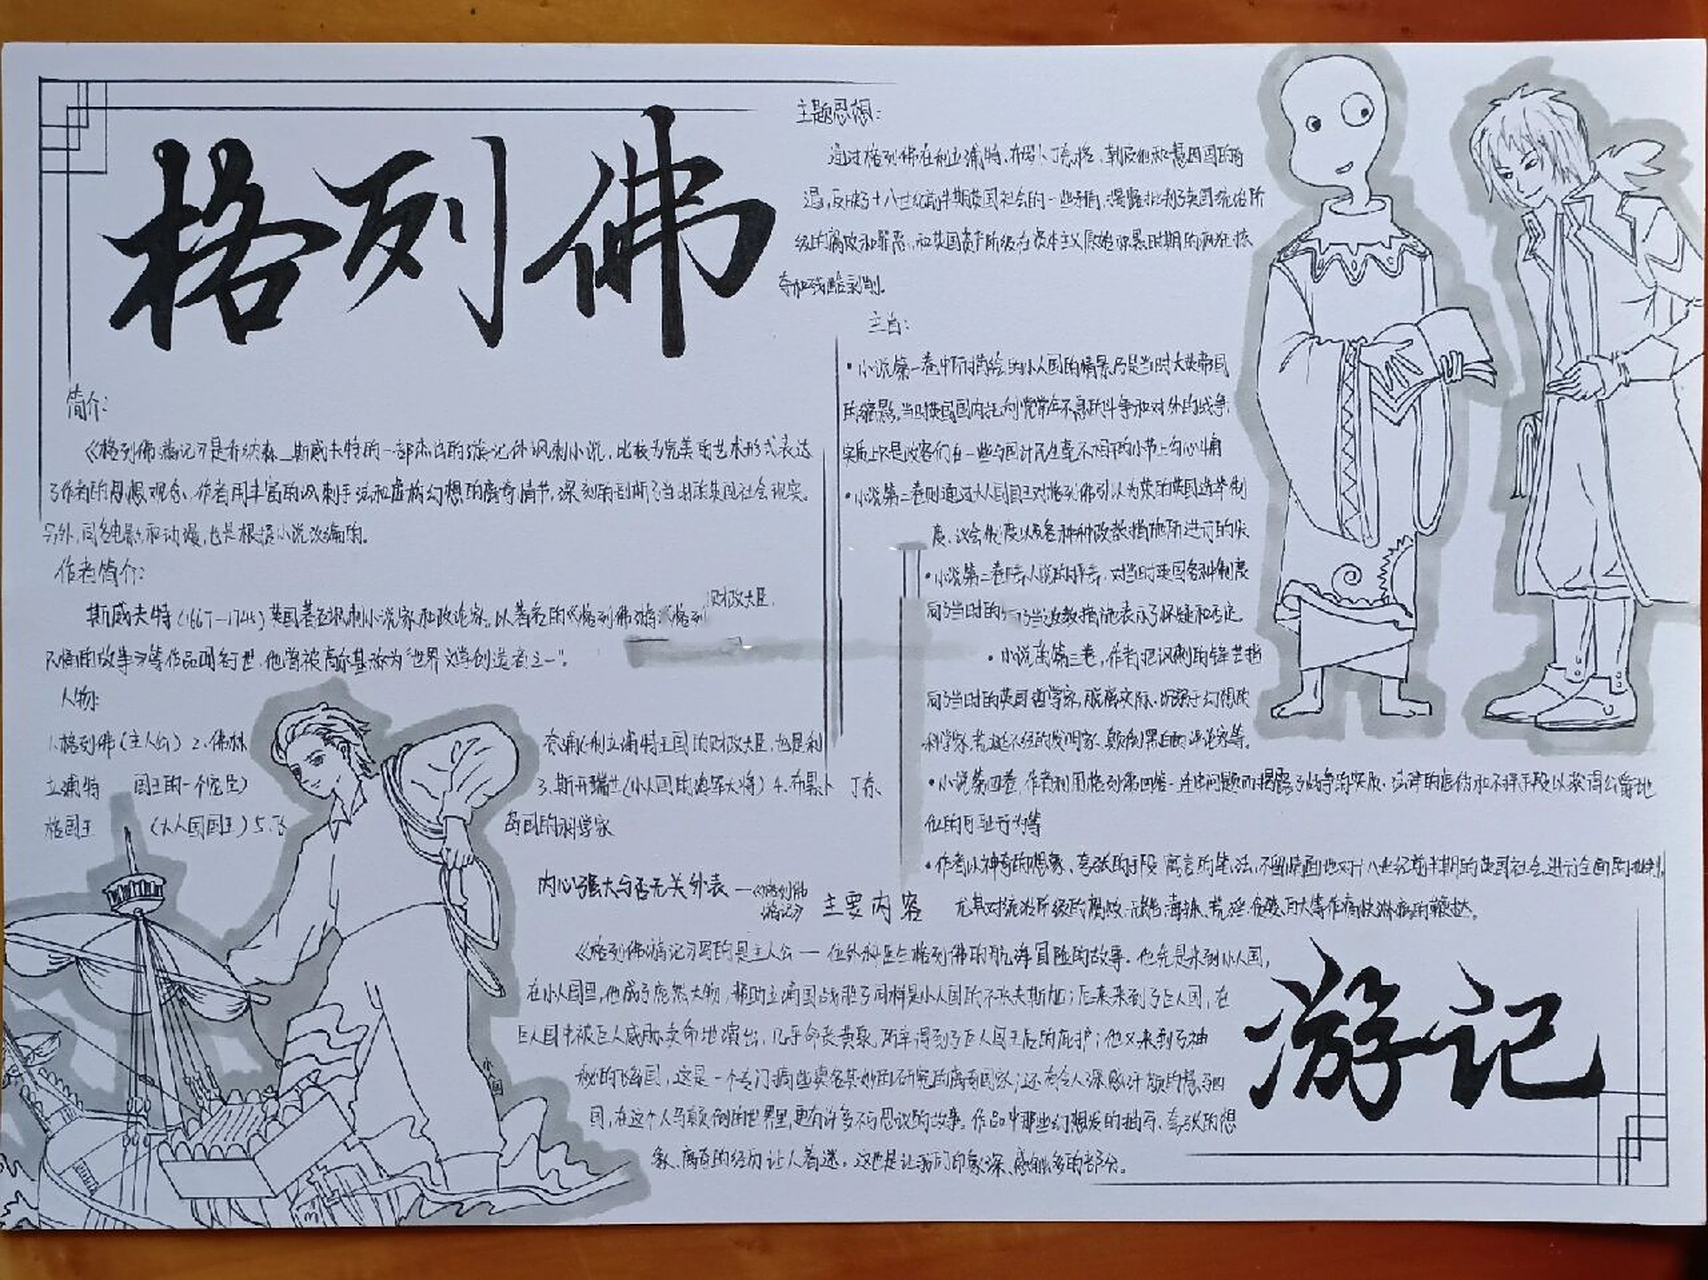 格列佛
简介:
《格列佛游记》是乔纳森_斯威夫特的一部杰出的游记体讽刺小说,比较为完美的艺术形式表达
了作者的思想观念,作者用丰富的讽刺手法和虚构幻想的离奇情节,深刻的剖析了当时的英国社会现实。
另外,同名电影和动漫,也是根据小说改编的。
作者简介:
斯威夫特(1667-1745)英国著名讽刺小说家和政论家。以著名的《格列佛游记》《格列
财政大臣,
只桶的故事》等作品闻名于世,他曾被高尔基称为“世界文学创造者之一”。
人物:
1.格列佛(主人公) 2.佛林
奈浦(利立浦特王国的财政大臣,也是利
立浦特 国王的一个宠臣)
3.斯开瑞士(小人国的海军大将) 4.布罗卜丁奈
格国王 (大人国国王) 5.飞
岛国的科学家
主题思想:
通过格列佛在利立浦特、布罗卜丁奈格、飞岛和慧骃国的奇
遇,反映了十八世纪前半期英国社会的一些矛盾,揭露批判了英国统治阶
级的腐败和罪恶,和英国资产阶级在资本主义原始积累时期的疯狂掠
夺和残酷剥削。
主旨:
·小说第一卷中所描绘的小人国的情景乃是当时大英帝国
的缩影,当时英国国内托利党常年不息的斗争和对外的战争,
实质上只是政客们在一些与国计民生毫不相干的小节上勾心斗角
·小说第二卷则通过大人国国王对格列佛引以为荣的英国选举制
度、议会制度以及各种种政教措施所进行的
·小说第二卷 对当时英国各种制度
政教措施表示了怀疑和否定。
·小说在第三卷,作者把讽刺的锋芒指
向了当时的英国哲学家,脱离实际、沉溺于幻想的
科学家,荒诞不经的发明家、颠倒黑白的评论家等。
·小说第四卷,作者利用格列佛回答一连串问题而揭露了战争的实质,法律的虚伪和不择手段以获得公爵地
位的可耻行为等
·作者以神奇的想象、夸张的手段,寓言的笔法,不留情面地对十八世纪前半期的英国社会进行全面的批判,
尤其对统治阶级的腐败、无能、毒辣、荒淫、贪婪、自大等作痛快淋漓的鞭挞。
内心强大与否无关外表—《格列佛
游记》
主要内容
《格列佛游记》写的是主人公一位外科医生格列佛的航海冒险的故事。他先是来到小人国,
在小人国里,他成了庞然大物,帮助立浦国战胜了同样是小人国的不来夫斯加;后来来到了巨人国,在
巨人国中被巨人威胁卖命地演出,几乎命丧黄泉,所幸得到了巨人国王后的庇护;他又来到了神
秘的飞岛国,这是一个专门搞些莫名其妙的研究的离奇国家;还有令人深感汗颜的慧骃
国,在这个人马颠倒的世界里,更有许多不可思议的故事。作品中那些幻想般的描写、夸张的想
象、离奇的经历让人着迷,这也是让我们印象深、感触多的部分。
小人国
游记